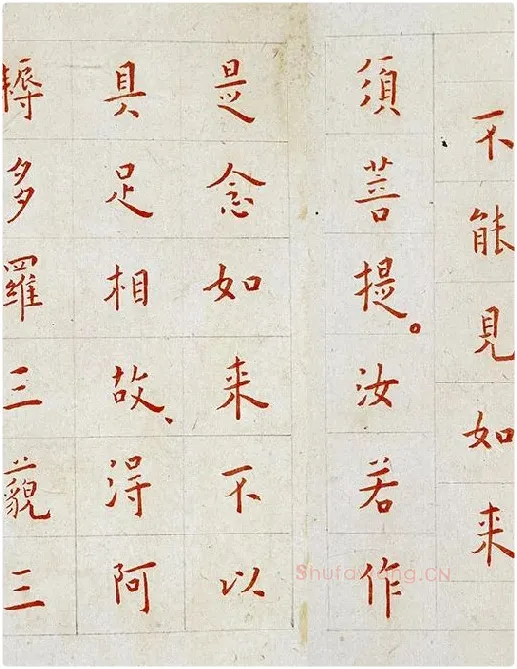 不能見如来
須菩提。汝若作
是念如来不以
具足相故、得阿
耨多羅三藐三
ShufaWang.CN